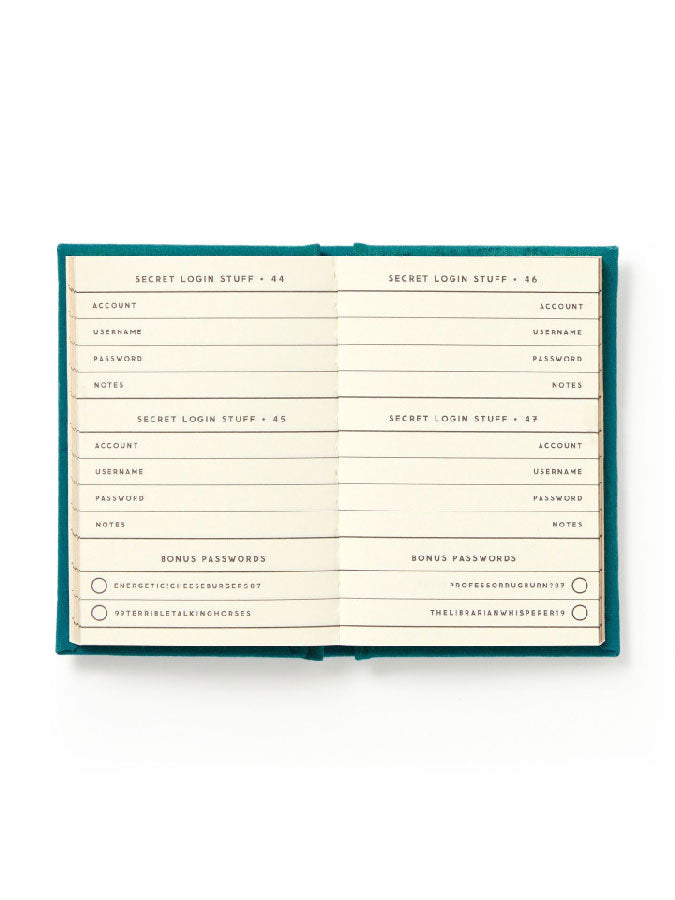 SECRET LOGIN STUFF • 44
ACCOUNT
USERNAME
PASSWORD
NOTES
SECRET LOGIN STUFF • 45
ACCOUNT
USERNAME
PASSWORD
NOTES
BONUS PASSWORDS
ENERGETIC!CHEESEBURGERS07
99TERRIBLETALKINGHORSES
SECRET LOGIN STUFF • 46
ACCOUNT
USERNAME
PASSWORD
NOTES
SECRET LOGIN STUFF • 47
ACCOUNT
USERNAME
PASSWORD
NOTES
BONUS PASSWORDS
THELIBRARIANWHISPERER19